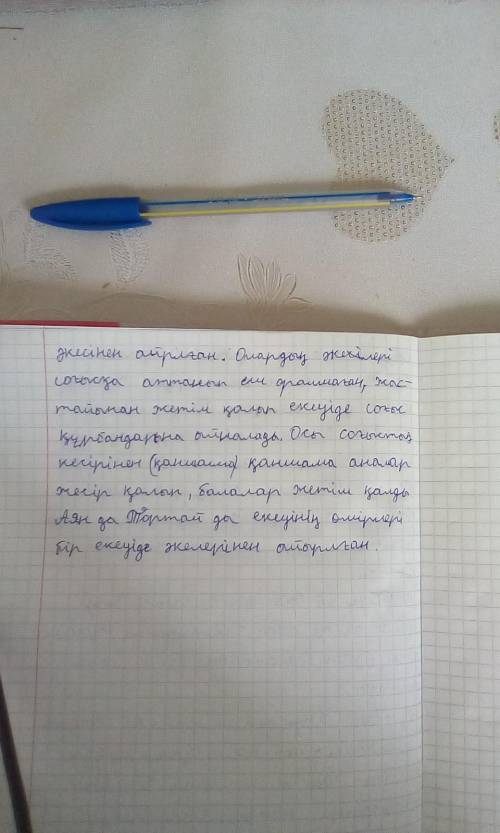 әкесінен айрлған. Олардың әкелері
соғысқа аттанып еш оралмаған, жас-
тайынан жетім қалып екеуіде соғыс
құрбандарына айналады. Осы соғыстың
кесірінен (қаншама) қаншама аналар
жесір қалып, балалар жетім қалды
Аян да Тортай да екеуінің өмірлері
бір екеуіде әкелерінен айырлған.